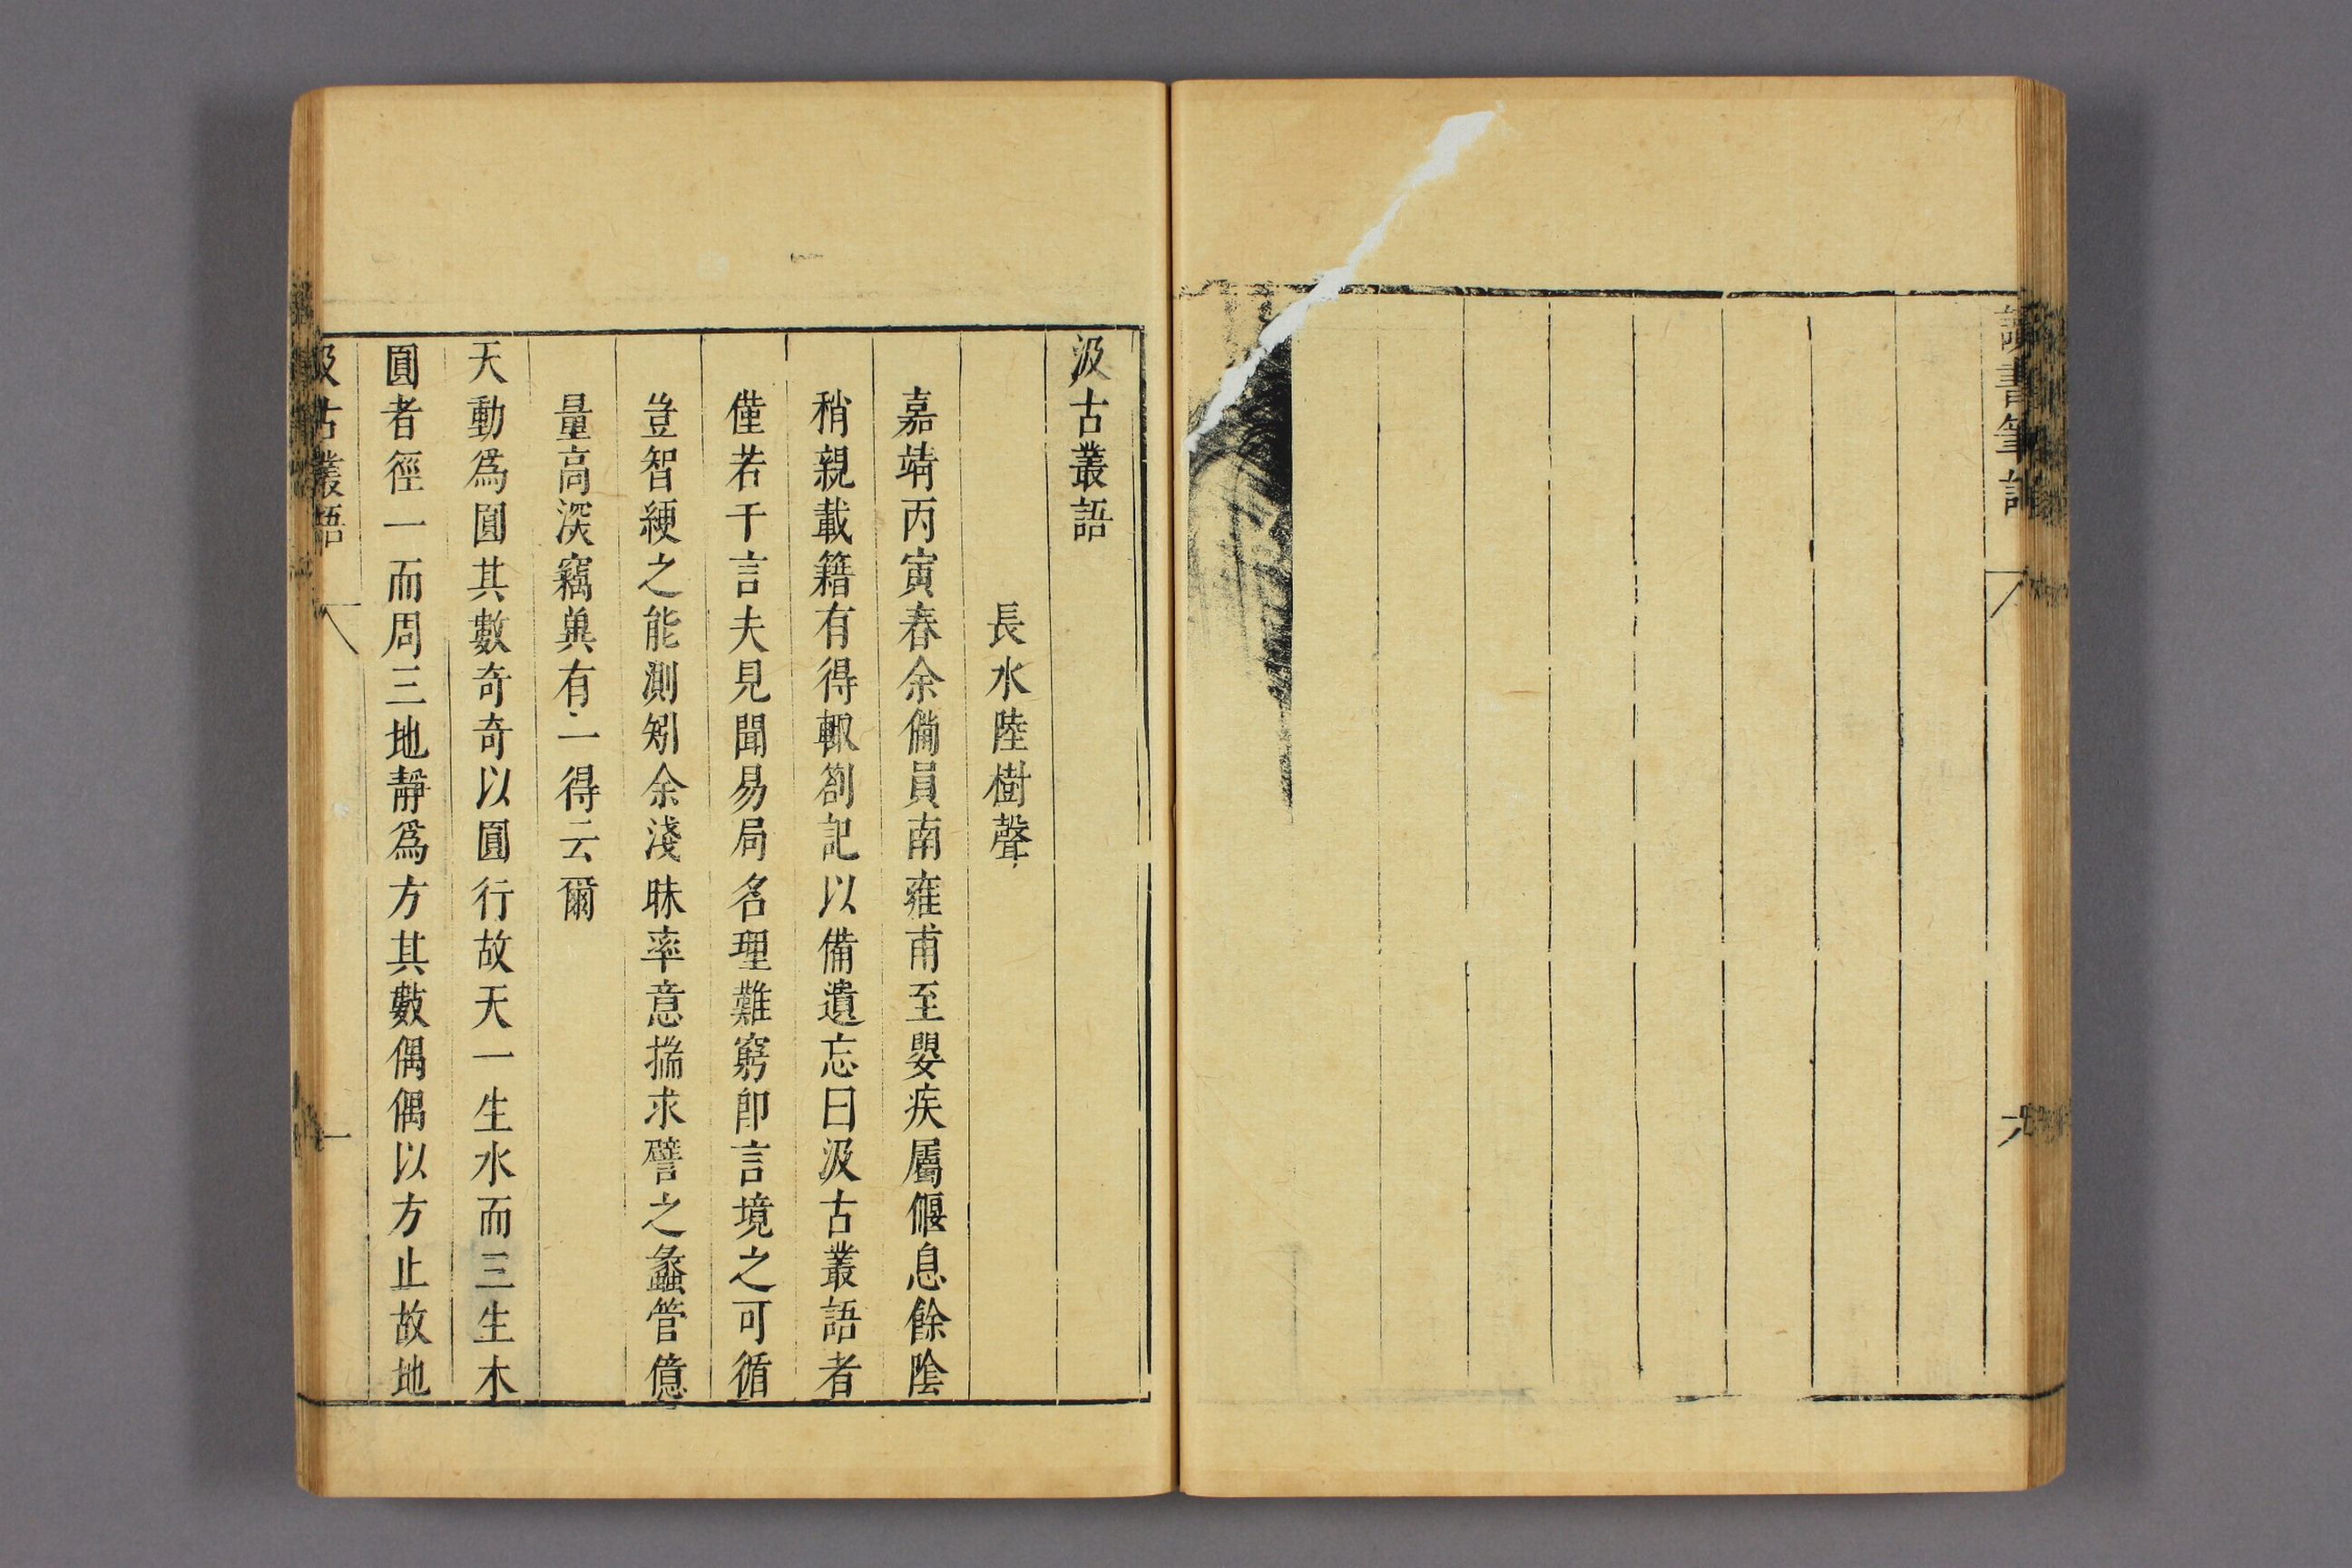 讀書筆記
六
汲古叢語
長水陸樹聲
嘉靖丙寅春余備員南雍甫至嬰疾屬偃息餘陰
稍親載籍有得輙劄記以備遺忘曰汲古叢語者
僅若干言夫見聞易局名理難窮卽言境之可循
豈智綆之能測矧余淺昧率意揣求譬之蠡管億
量高深竊兾有一得云爾
天動爲圓其數奇奇以圓行故天一生水而三生木
圓者徑一而周三地靜爲方其數偶偶以方止故地
汲古叢語
一